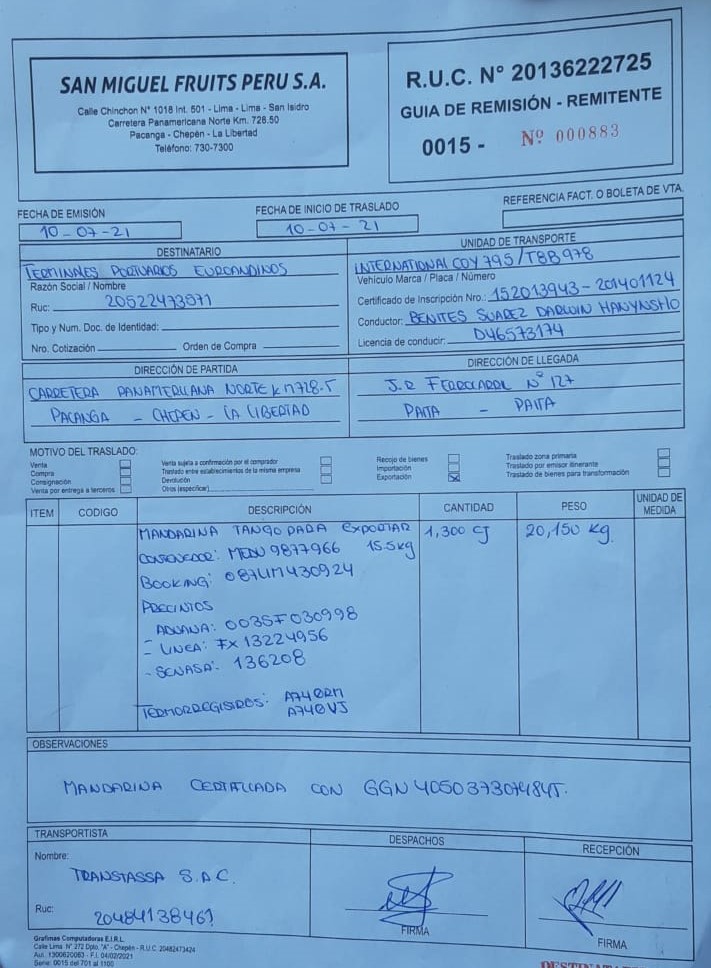 SAN MIGUEL FRUITS PERU S.A.
Calle Chinchon N° 1018 Int. 601 - Lima - Lima - San Isidro
Carretera Panamericana Norte Km. 728.50
Pacanga - Chepén - La Libertad
Teléfono: 730-7300
R.U.C. N° 20136222725
GUIA DE REMISIÓN - REMITENTE
0015 - Nº 000883
FECHA DE EMISIÓN
10-07-21
FECHA DE INICIO DE TRASLADO
10-07-21
REFERENCIA FACT. O BOLETA DE VTA.
DESTINATARIO
TERMINALES PORTUARIOS EUROANDINOS
Razón Social / Nombre
Ruc: 20522473571
Tipo y Num. Doc. de Identidad:
Nro. Cotización Orden de Compra
UNIDAD DE TRANSPORTE
INTERNATIONAL CDY 795/TBB 978
Vehículo Marca / Placa / Número
Certificado de Inscripción Nro.: 152013943-201401124
Conductor: BENITES SUAREZ DARWIN HANYNSHO
Licencia de conducir: D46573174
DIRECCIÓN DE PARTIDA
CARRETERA PANAMERICANA NORTE KM 728.5
PACANGA - CHEPEN - LA LIBERTAD
DIRECCIÓN DE LLEGADA
J.R FERROCARRIL N° 127
PAITA - PAITA
MOTIVO DEL TRASLADO:
Venta
Compra
Consignación
Venta por entrega a terceros
Venta sujeta a confirmación por el comprador
Traslado entre establecimientos de la misma empresa
Devolución
Otros (especificar)
Recojo de bienes
Importación
Exportación
Traslado zona primaria
Traslado por emisor itinerante
Traslado de bienes para transformación
ITEM CODIGO DESCRIPCIÓN CANTIDAD PESO UNIDAD DE MEDIDA
MANDARINA TANGO PARA EXPORTAR 1,300 CJ 20,150 kg.
CONTENEDOR: MEDU 9877966 15.5kg
BOOKING: 087LIM430924
PRECINTOS
- ADUANA: 0035F030998
- LINEA: FX 13224956
- SENASA: 136208
TERMORREGISTROS: A740RM
A740VJ
OBSERVACIONES
MANDARINA CERTIFICADA CON GGN 4050373074845.
TRANSPORTISTA
Nombre:
TRANSTASSA S.A.C.
Ruc: 20484138461
DESPACHOS
FIRMA
RECEPCIÓN
FIRMA
Grafimas Computadoras E.I.R.L.
Calle Lima N° 272 Dpto. "A" - Chepén - R.U.C. 20482473424
Aut. 1300620083 - F.I. 04/02/2021
Serie: 0015 del 701 al 1100